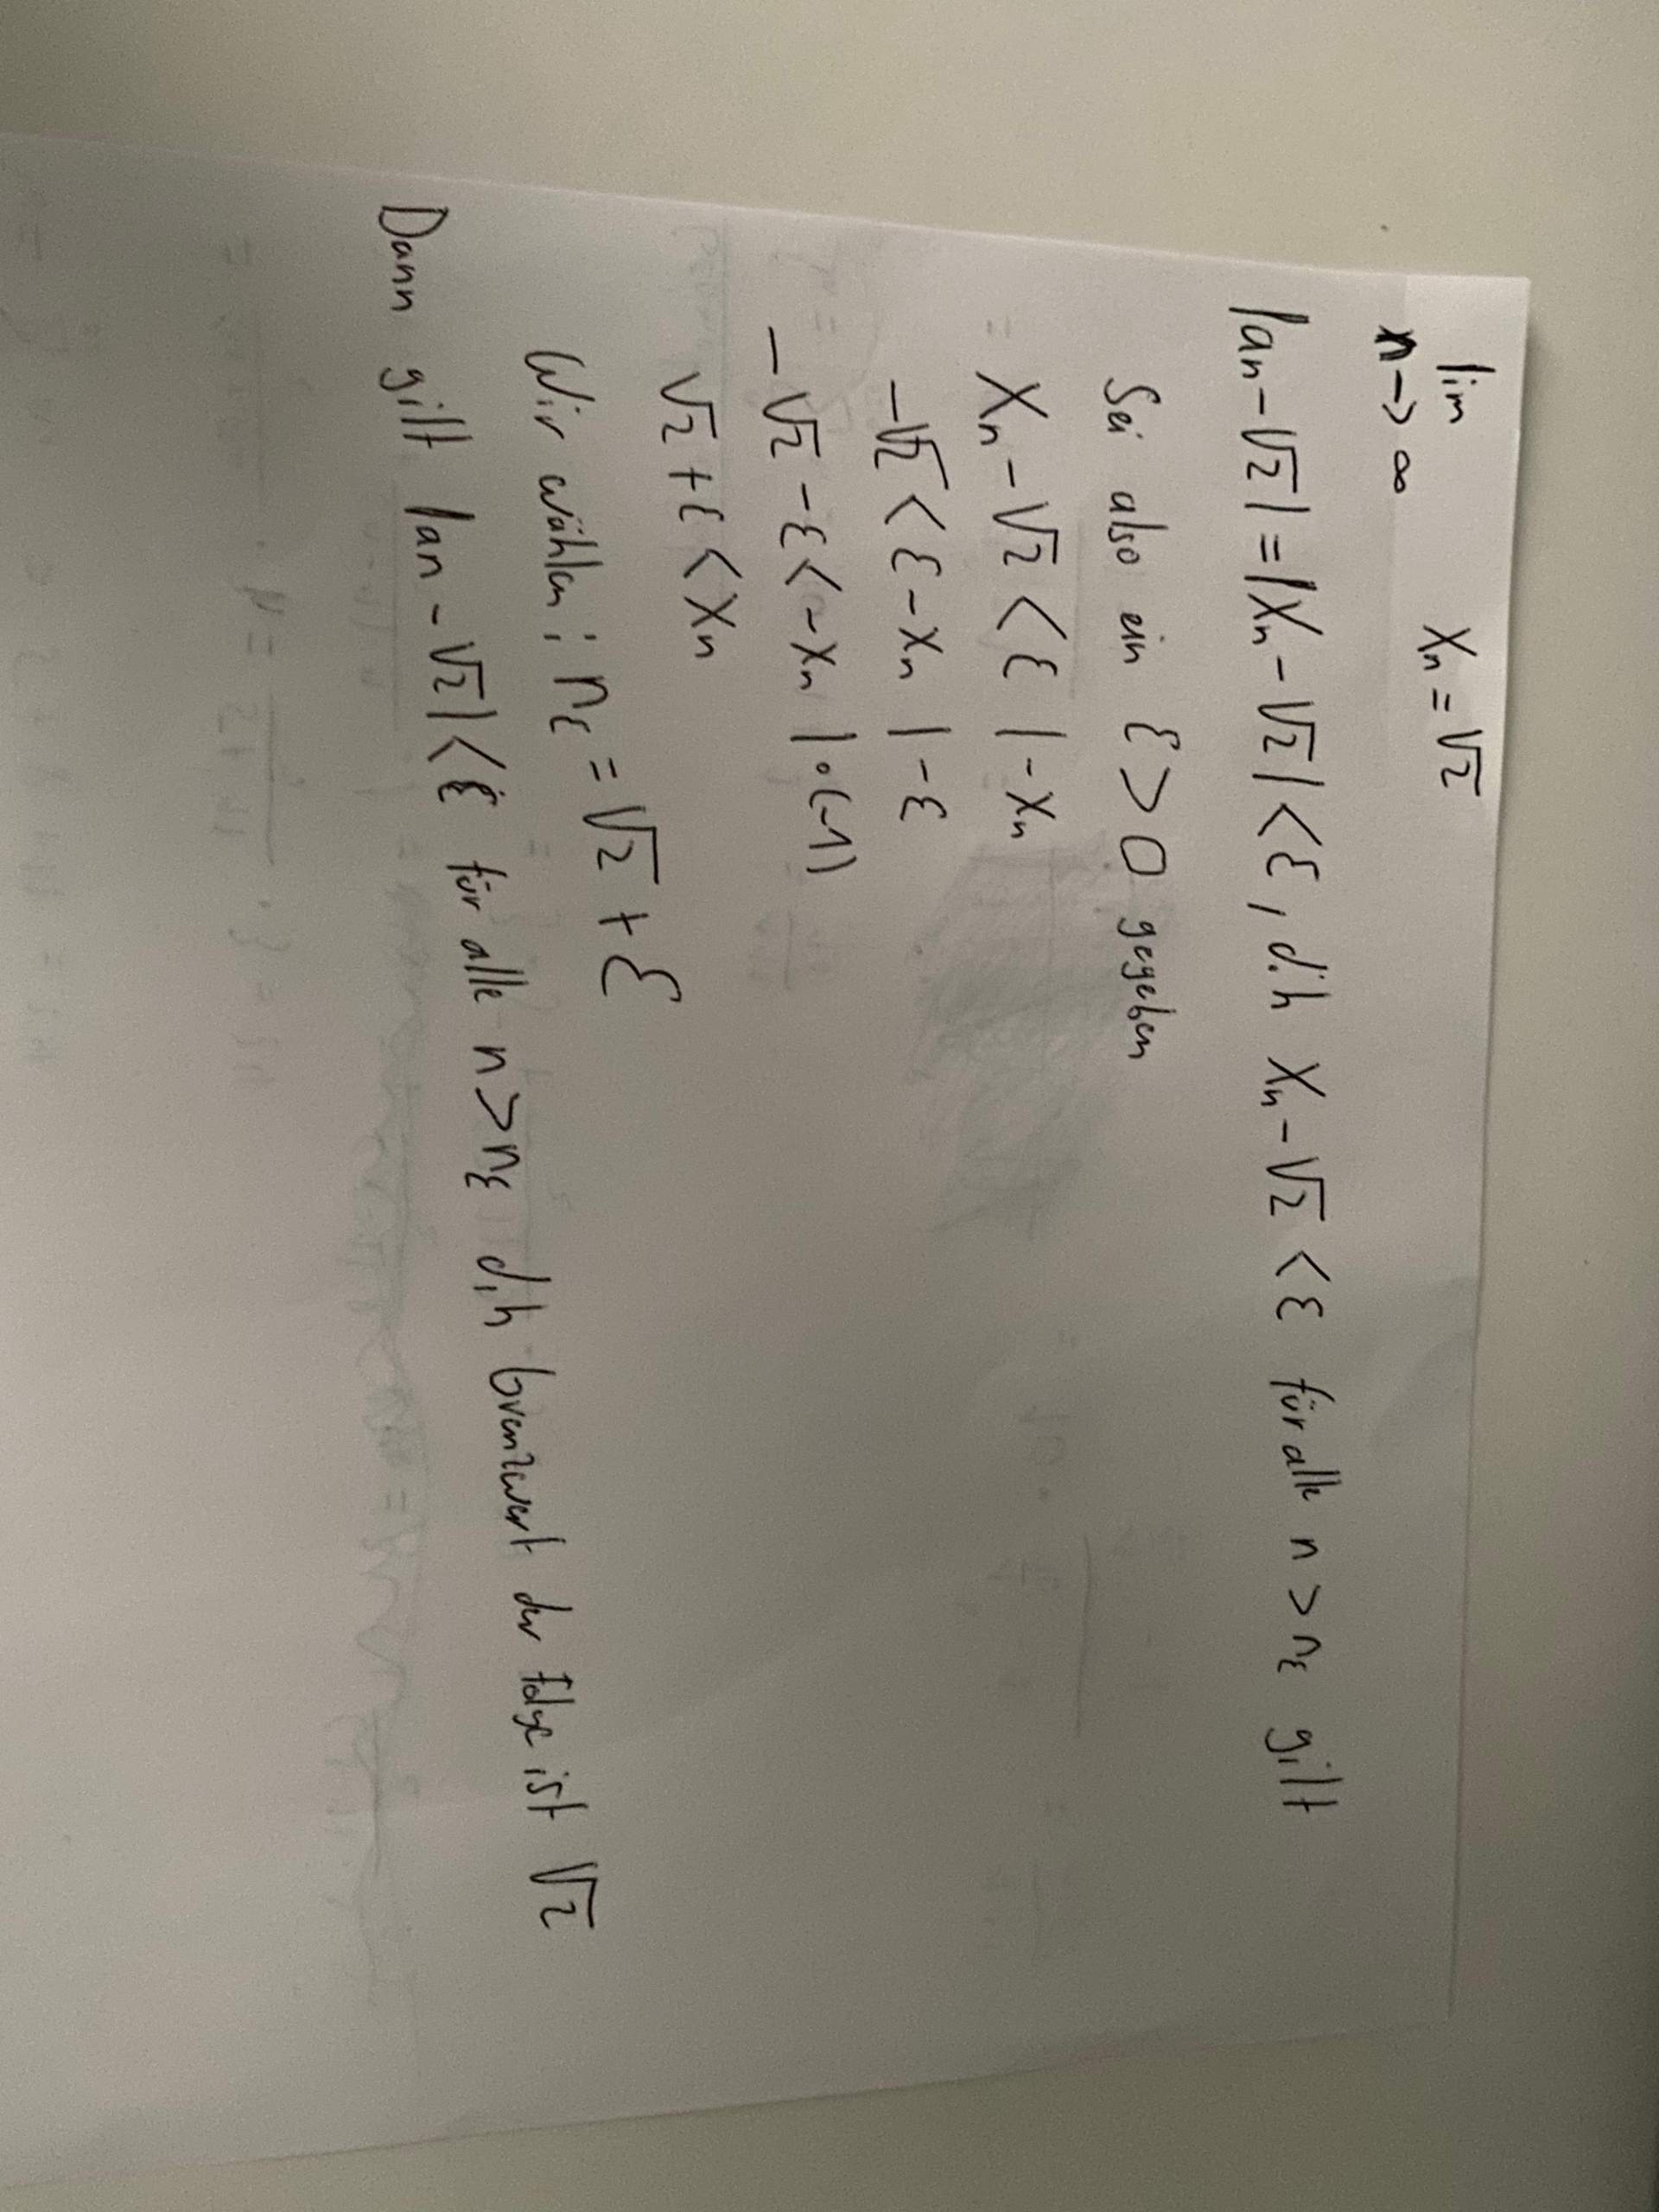 lim xₙ = √2
n→∞
|an - √2| = |Xₙ - √2| < ε, d.h Xₙ - √2 < ε für alle n > nε gilt
Sei also ein ε > 0 gegeben
Xₙ - √2 < ε | - xₙ
-√2 < ε - xₙ | - ε
-√2 - ε < - xₙ | · (-1)
√2 + ε < xₙ
Wir wählen : nε = √2 + ε
Dann gilt |an - √2| < ε für alle n > nε d.h Grenzwert der folge ist √2